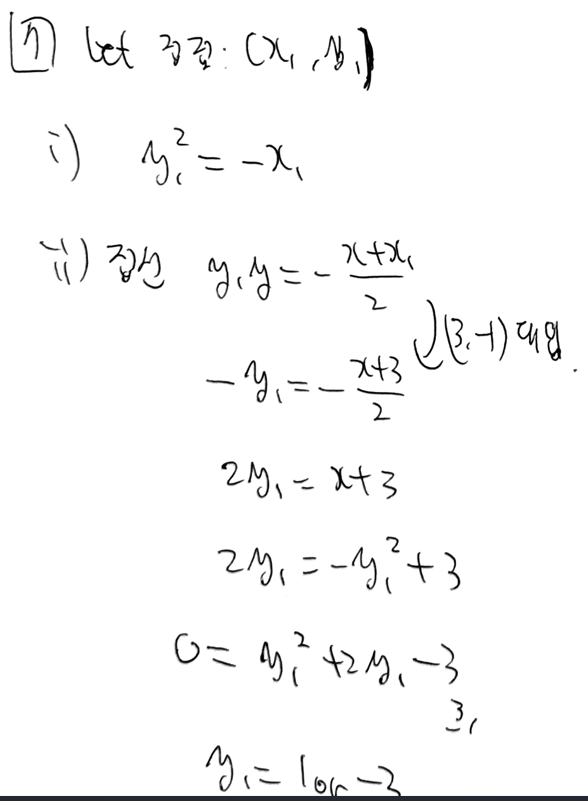 풀이 let 접점: (x₁, y₁)
i) y₁² = -x₁
ii) 접선 y₁y = -\frac{x+x₁}{2}
(3, -1) 대입.
-y₁ = -\frac{x+3}{2}
2y₁ = x+3
2y₁ = -y₁²+3
0 = y₁²+2y₁-3
3, 1
y₁ = 1 or -3